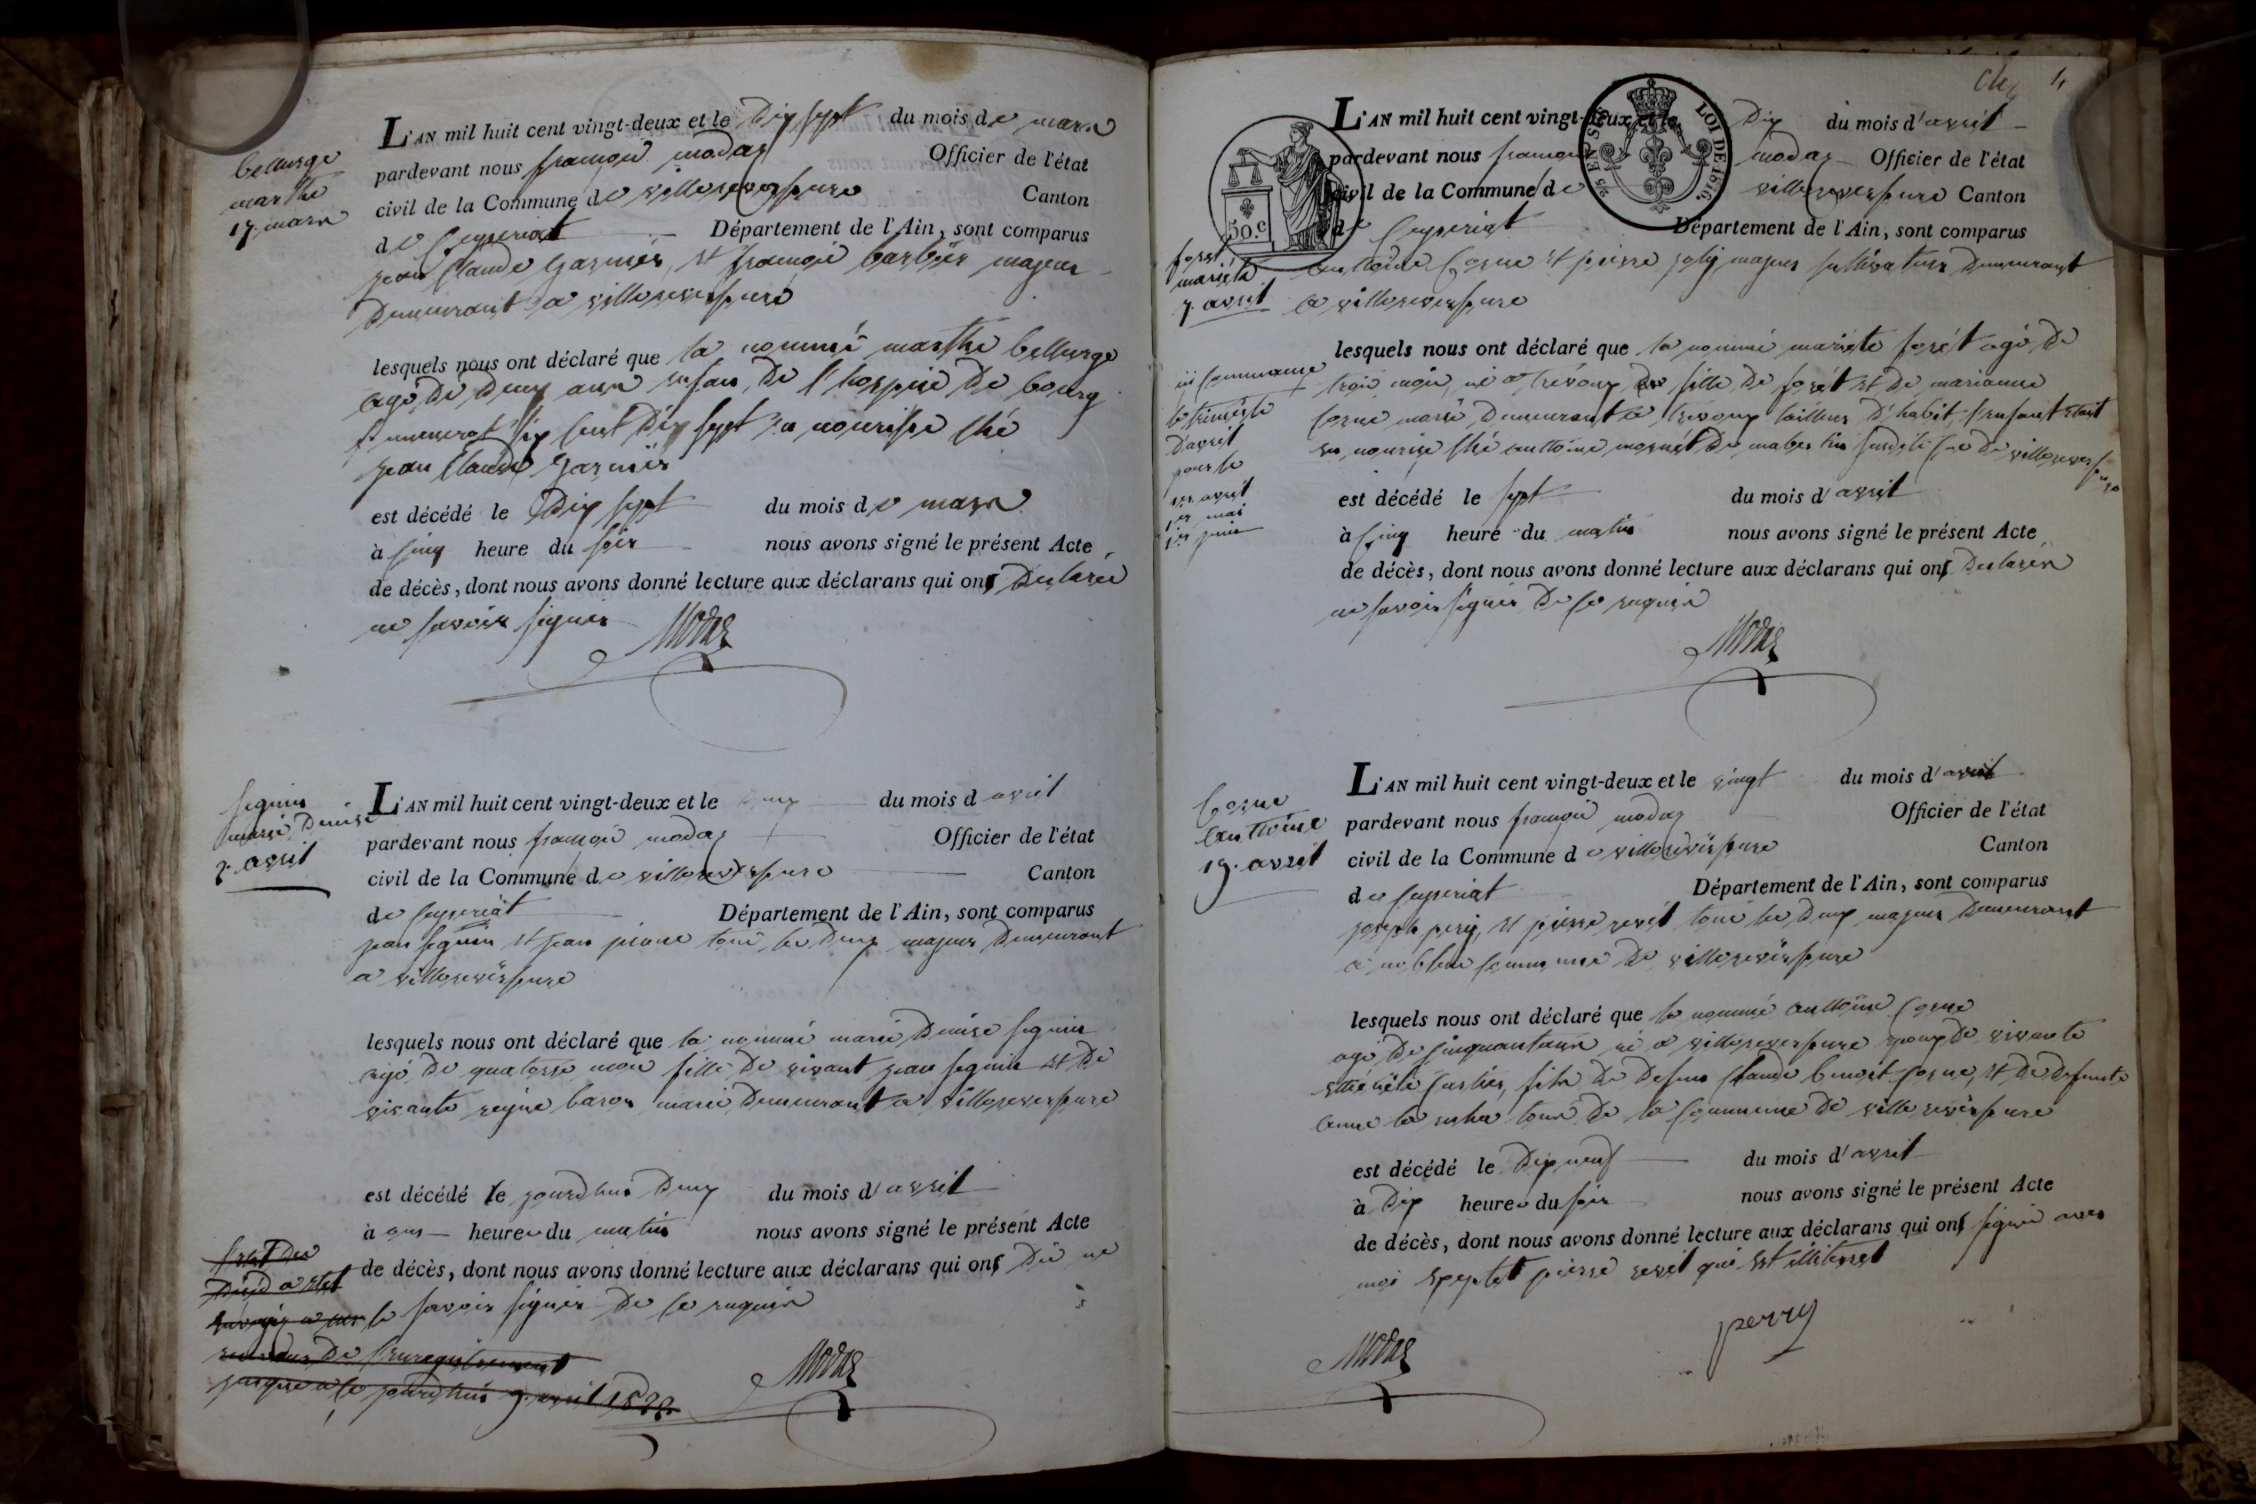 bellurge
marthe
17. mars
L'AN mil huit cent vingt-deux et le Dix sept du mois de mars
pardevant nous françois modas Officier de l'état
civil de la Commune de villereversure Canton
de Ceyseriat Département de l'Ain, sont comparus
jean Claude Garnier, et françois barbier majeur
Demeurant a villereversure
lesquels nous ont déclaré que la nommé marthe bellurge
agé de Deux ans enfan De l'hospice De bourg
numerot six Cent Dix sept en nourisse ché
jean Claude Garnier
est décédé le Dix sept du mois de mars
à Cinq heure du soir nous avons signé le présent Acte
de décès, dont nous avons donné lecture aux déclarans qui ont Declarée
ne savoir signer
Modas
seguin
marie Denise
2. avril
L'AN mil huit cent vingt-deux et le Deux du mois d avril
pardevant nous françois modas Officier de l'état
civil de la Commune de villereversure Canton
de Ceyseriat Département de l'Ain, sont comparus
jean seguin et jean tous les Deux majeur Demeurant
a villereversure
lesquels nous ont déclaré que la nommé marie Denise seguin
agé De quatorse mois fille De vivant jean seguin et De
vivante regine baron marié Demeurant a villereversure
est décédé le jourdhui Deux du mois d'avril
à heure du matin nous avons signé le présent Acte
de décès, dont nous avons donné lecture aux déclarans qui ont Dis ne
savoir signer De ce requis
De l'enregistrement
jusque a ce jourdhui 9. avril 1822
Modas
4
25 EN SUS
LOI DE 1816.
50.c
L'AN mil huit cent vingt-deux et le Dix du mois d'avril
pardevant nous françois modas Officier de l'état
civil de la Commune de villereversure Canton
de Ceyseriat Département de l'Ain, sont comparus
foret
mariete
7. avril
anttoine Corne et pierre joly majeur cultivateur Demeurant
a villereversure
lesquels nous ont déclaré que la nommé mariete forét agé De
ici commance
le trimestre
D'avril
pour le
1er avril
1er mai
1er juin
trois mois, né a trévoux fille De forét et De marianne
Corne marié Demeurant a trevoux tailleur D'habit, l'enfant etait
en nourise ché anttoine De susdite Cne De villereversure
est décédé le sept du mois d'avril
à Cinq heure du matin nous avons signé le présent Acte
de décès, dont nous avons donné lecture aux déclarans qui ont Declarés
ne savoir signer De ce requis
Modas
Corne
anttoine
19. avril
L'AN mil huit cent vingt-deux et le vingt du mois d'avril
pardevant nous françois modas Officier de l'état
civil de la Commune de villereversure Canton
de Ceyseriat Département de l'Ain, sont comparus
joseph pery, et pierre revét tous les Deux majeur Demeurant
a noblens Commune De villereversure
lesquels nous ont déclaré que le nommé anttoine Corne
agé De Cinquantans né a villereversure epoux De vivante
fils De Defun Claude benoit Corne, et De Defunte
anne la tous De la Commune De villereversure
est décédé le Dix neuf du mois d'avril
à Dix heure du soir nous avons signé le présent Acte
de décès, dont nous avons donné lecture aux déclarans qui ont signé avec
moi exeptet pierre revet qui est illiteret
perry
Modas